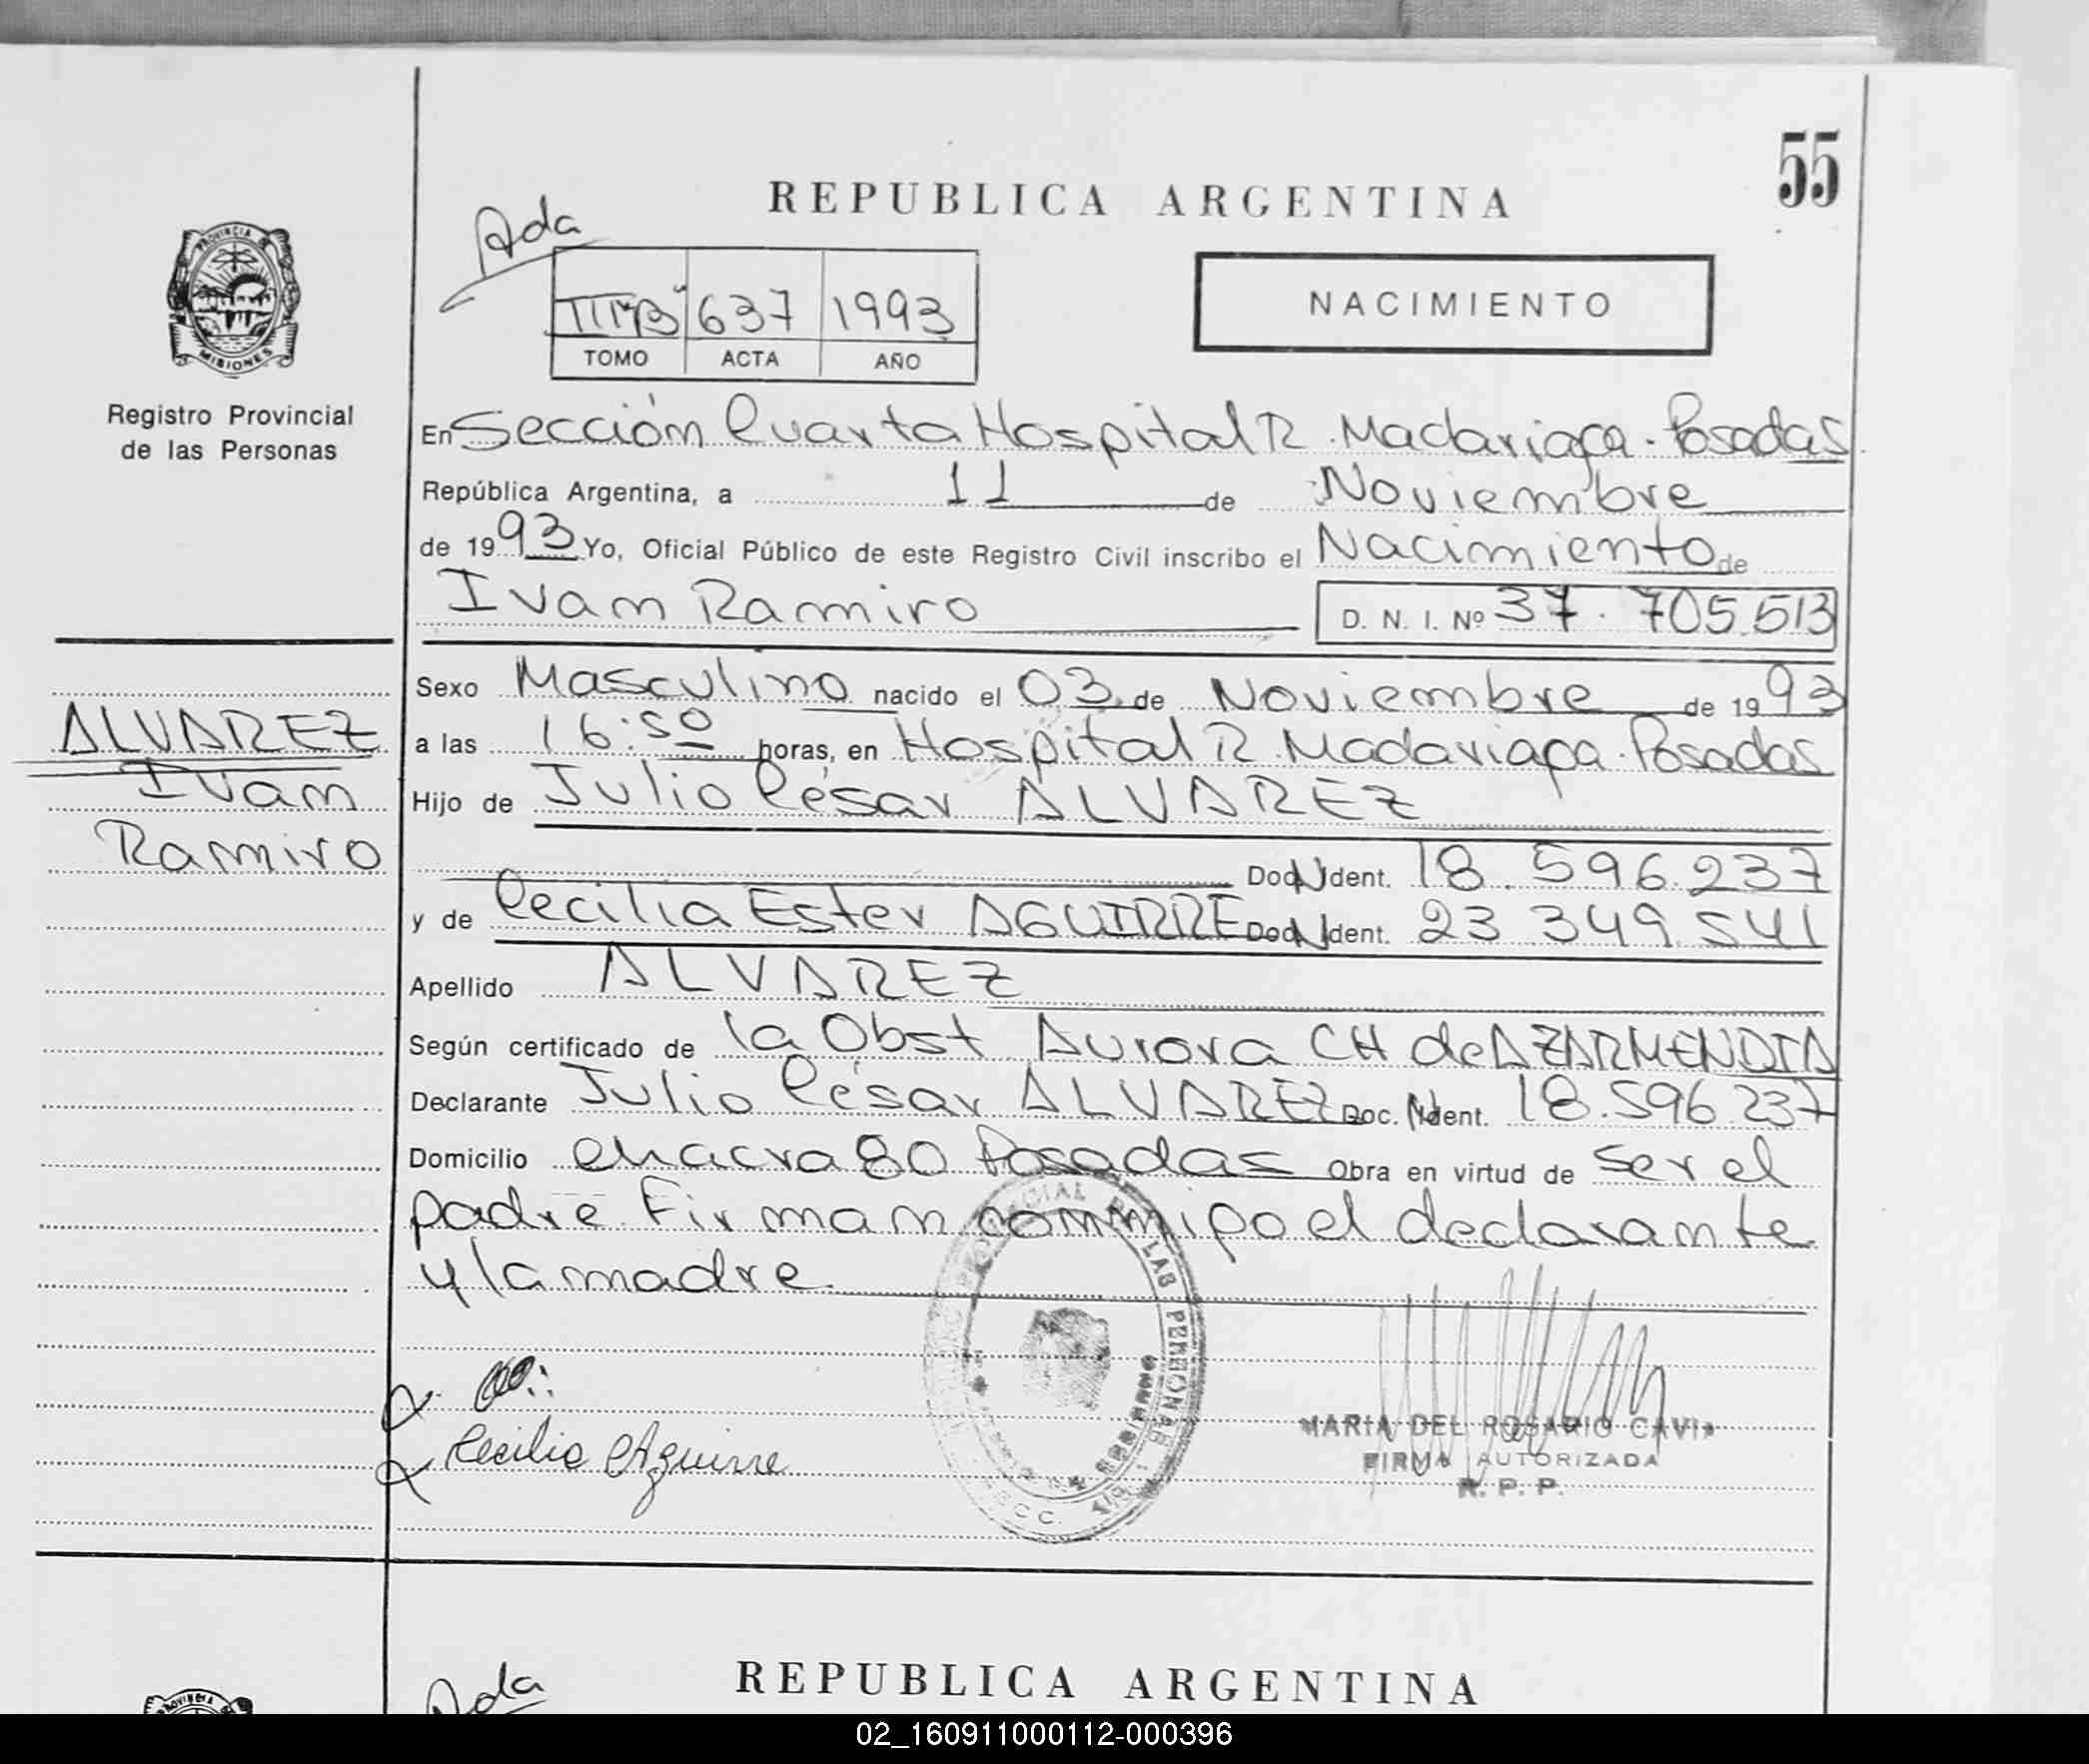 55
REPUBLICA ARGENTINA
Ada
PROVINCIA DE
MISIONES
637 1993
TOMO ACTA AÑO
NACIMIENTO
Registro Provincial
de las Personas
En Sección Cuarta Hospital R. Madariaga - Posadas
República Argentina, a 11 de Noviembre
de 1993 Yo, Oficial Público de este Registro Civil inscribo el Nacimiento de
Ivam Ramiro D. N. I. Nº 37.705.513
Sexo Masculino nacido el 03 de Noviembre de 1993
ALVAREZ
Ivam
Ramiro
a las 16:50 horas, en Hospital R. Madariaga - Posadas
Hijo de Julio César ALVAREZ
Doc. Ident. 18.596.237
y de Cecilia Ester AGUIRRE Doc. Ident. 23 349 541
Apellido ALVAREZ
Según certificado de la Obst Aurora CH de AZARMENDIA
Declarante Julio César ALVAREZ Doc. Ident. 18.596.237
Domicilio chacra 80 Posadas Obra en virtud de ser el
padre. Firman conmigo el declarante
y la madre.
Cecilia Aguirre
LAS PERSONAS
MARIA DEL ROSARIO CAVIA
FIRMA AUTORIZADA
R. P. P.
Ada
REPUBLICA ARGENTINA
02_160911000112-000396